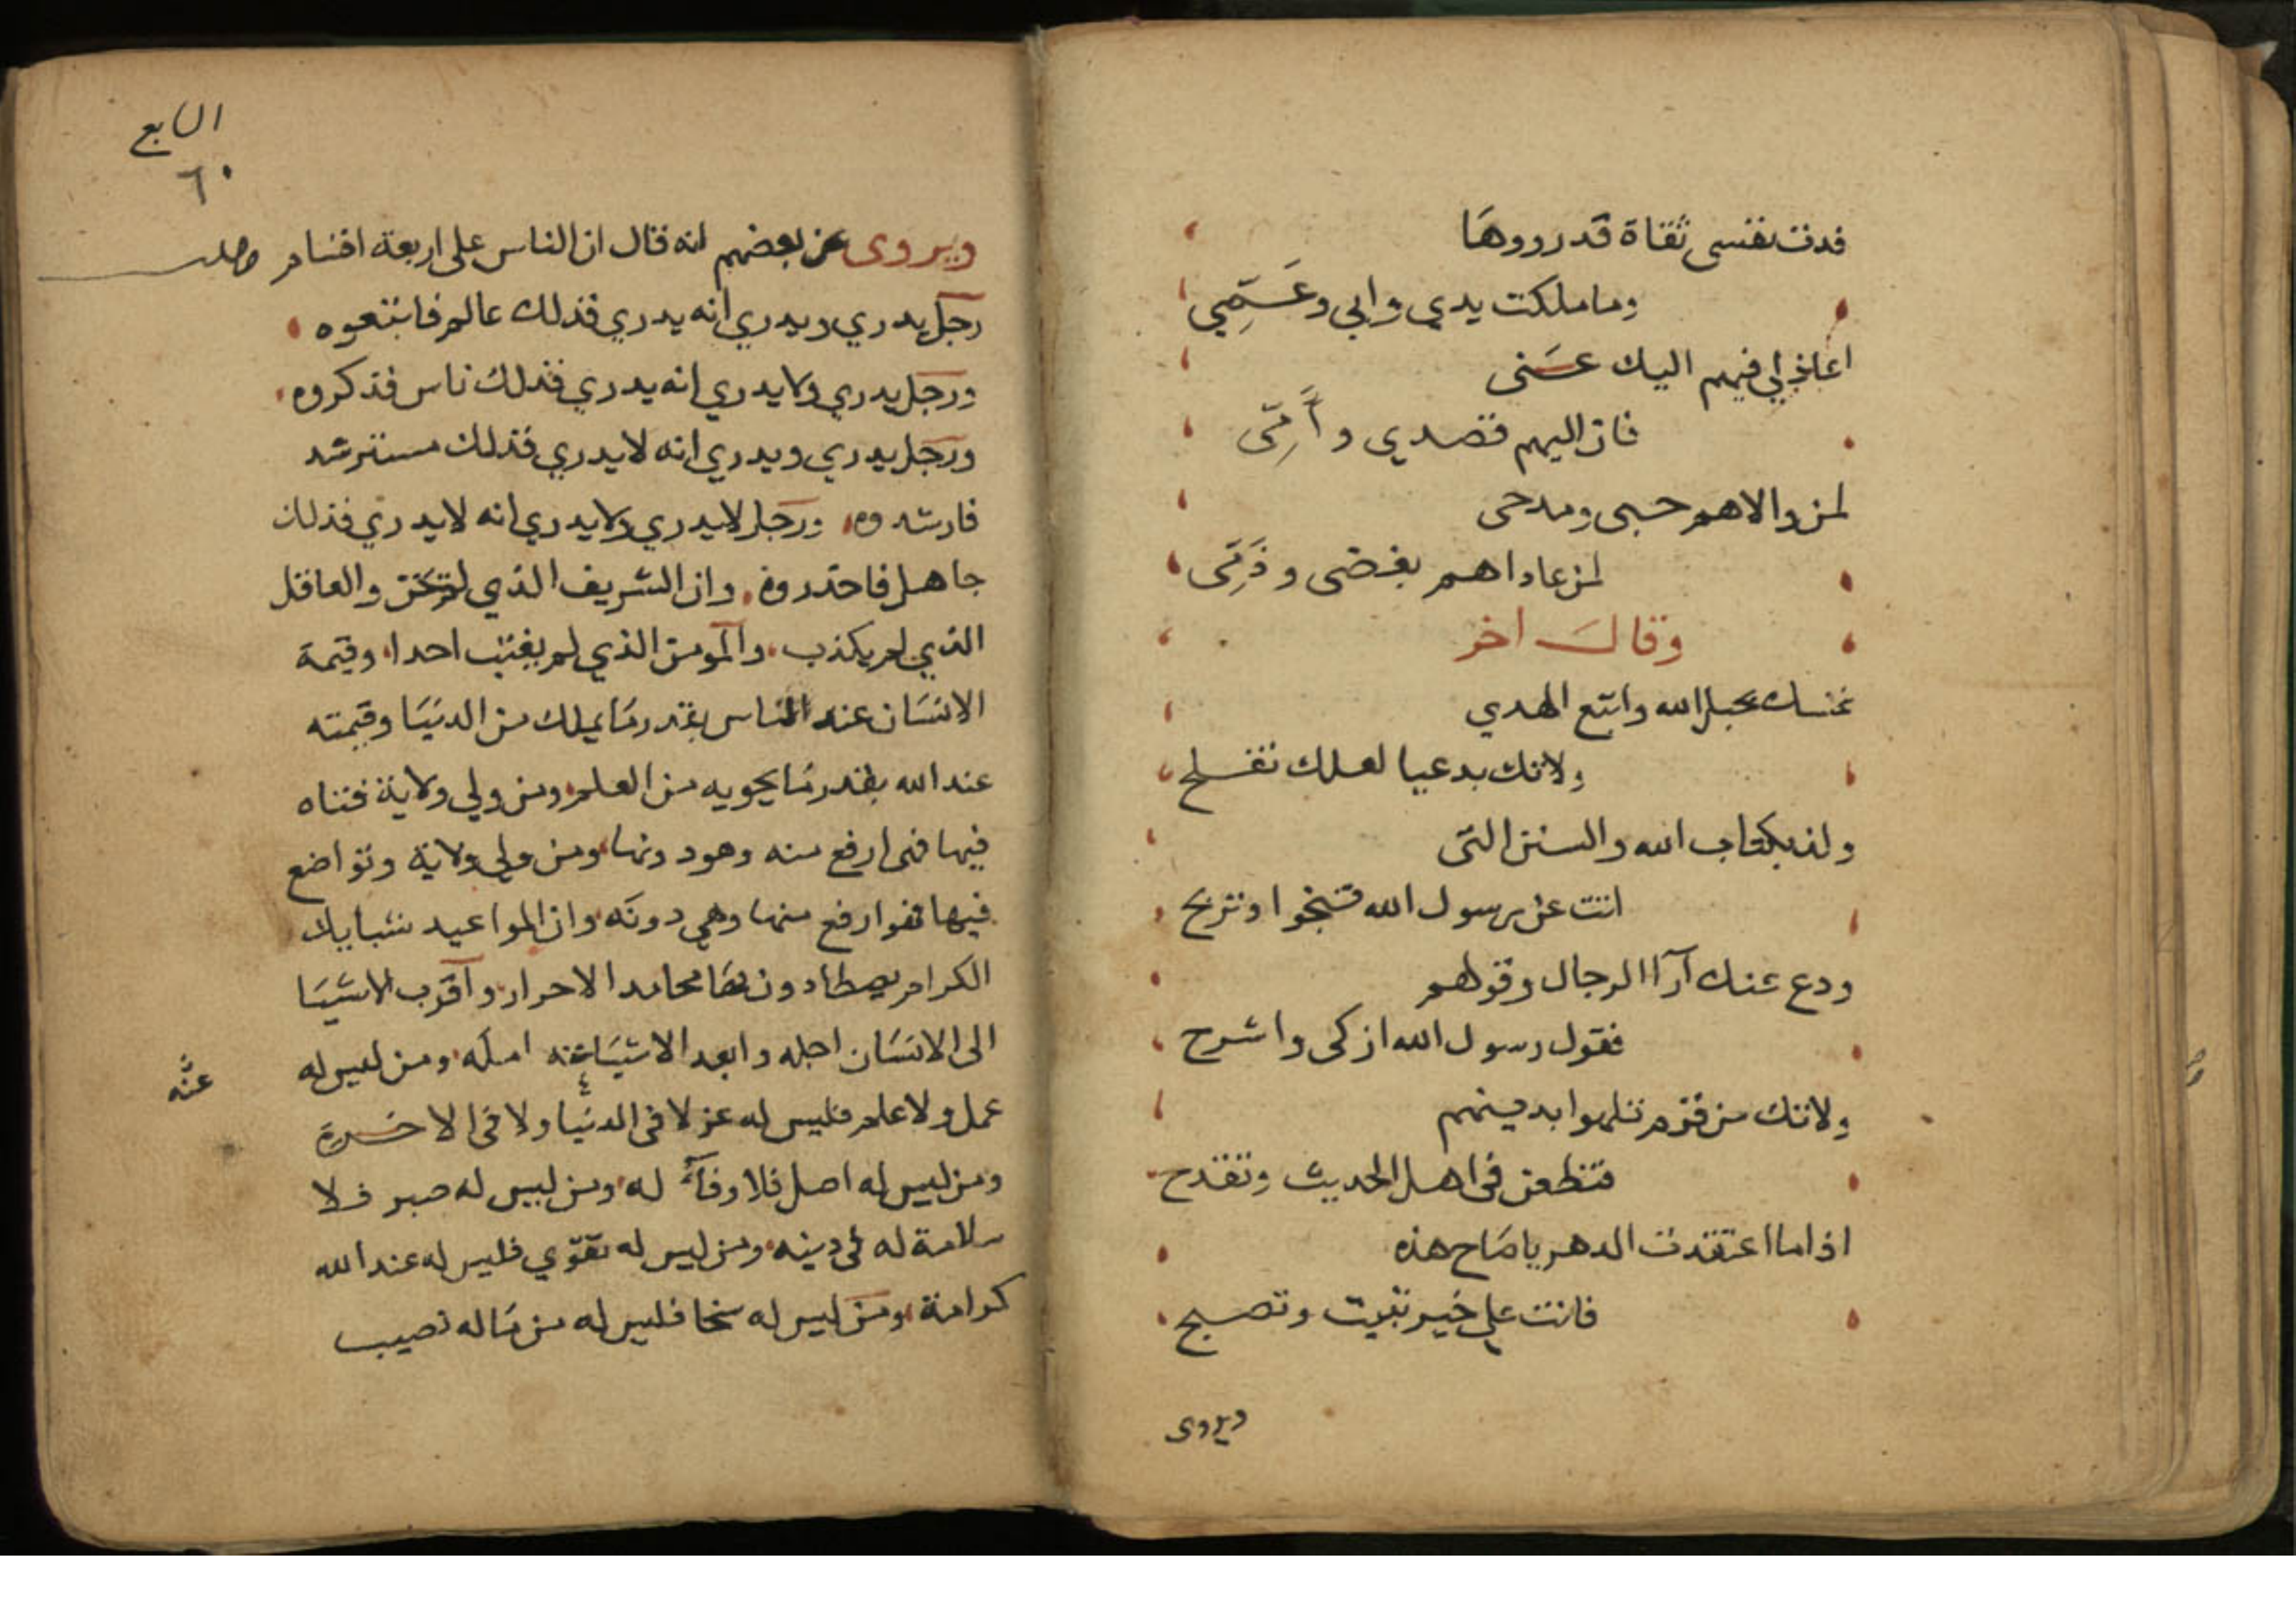 فدت نفسى ثقاة قد رووها
وما ملكت يدي وابي وعمي
اعاذلي فيهم اليك عنى
فان اليهم قصدي وأمى
لمن والاهم حبى ومدحى
لمن عاداهم بغضى وذمى
وقال اخر
تمسك بحبل الله واتبع الهدي
ولاتك بدعيا لعلك تفلح
ولذ بكتاب الله والسنن التى
اتت عن رسول الله تنجوا وتربح
ودع عنك آرآا الرجال وقولهم
فقول رسول الله ازكى واشرح
ولاتك من قوم تلهوا بدينهم
فتطعن فى اهل الحديث وتقدح
اذا ما اعتقدت الدهر يا صاح هذه
فانت على خير تبيت وتصبح
ويروى
السابع
٦٠
ويروى عن بعضهم انه قال ان الناس على اربعة اقسام
رجل يدري ويدري انه يدري فذلك عالم فاتبعوه
ورجل يدري ولايدري انه يدري فذلك ناس فذكروه
ورجل يدري ويدري انه لايدري فذلك مسترشد
فارشدوه ورجل لايدري ولايدري انه لايدري فذلك
جاهل فاحذروه وان الشريف الذي والعاقل
الذي لم يكذب والمومن الذي لم يغتب احدا وقيمة
الانسان عند الناس بقدر ما يملك من الدنيا وقيمته
عند الله بقدر ما يحويه من العلم ومن ولي ولاية فتاه
فيها فهى ارفع منه وهو دونها ومن ولي ولاية وتواضع
فيها فهو ارفع منها وهي دونه وان المواعيد شبا
الكرام يصطادون بها محامد الاحرار واقرب الاشيا
الى الانسان اجله وابعد الاشيا عنه امله ومن ليس له
عنه
عمل ولا علم فليس له عز لا فى الدنيا ولا فى الاخرة
ومن ليس له اصل فلا وفآء له ومن ليس له صبر فلا
سلامة له فى دينه ومن ليس له تقوي فليس له عند الله
كرامة ومن ليس له سخا فليس له من ماله نصيب